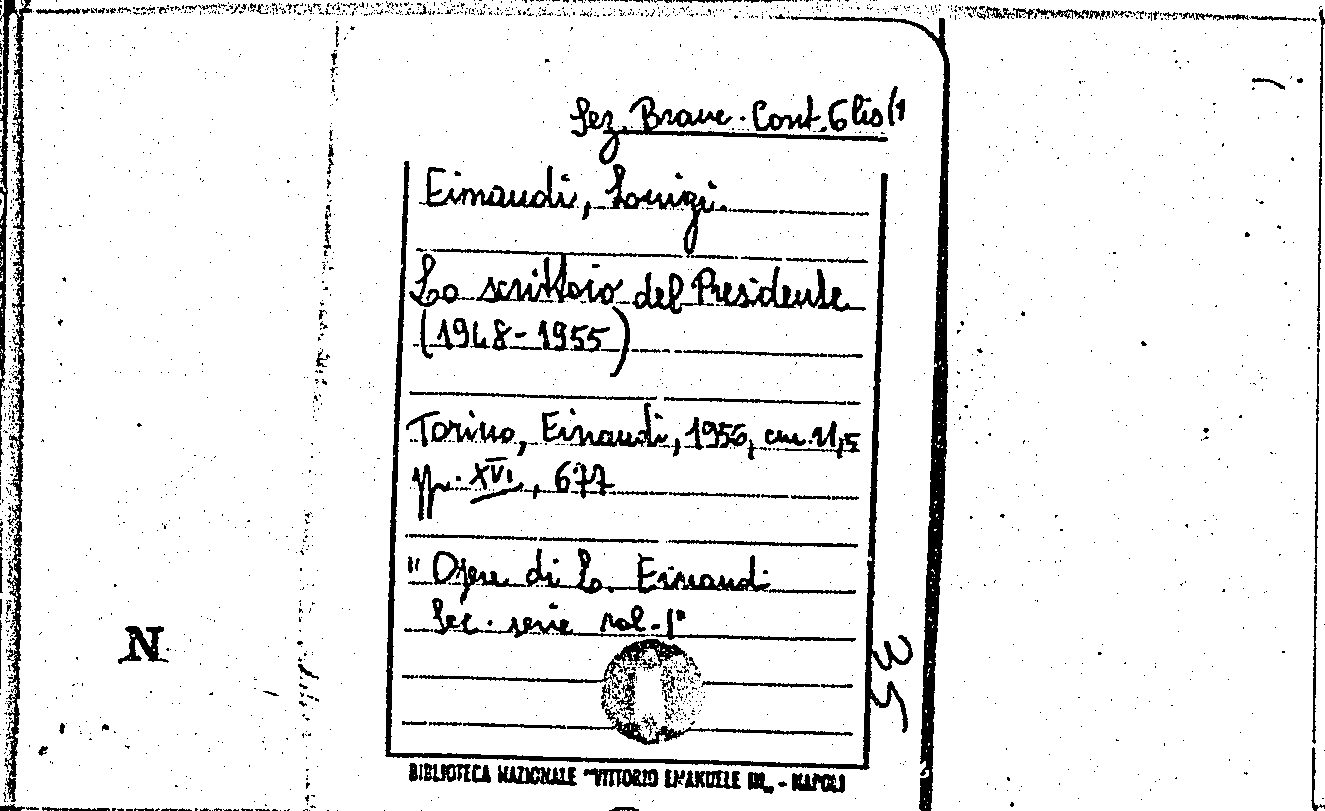 Sez. Branc. Cont. 6 bis (1
Einaudi, Luigi.
Lo scrittoio del Presidente
(1948-1955)
Torino, Einaudi, 1956, cm. 21,5
pp. XVI, 677
"Opere di L. Einaudi
Sec. serie vol. 1°
N
35
BIBLIOTECA NAZIONALE "VITTORIO EMANUELE III„ - NAPOLI